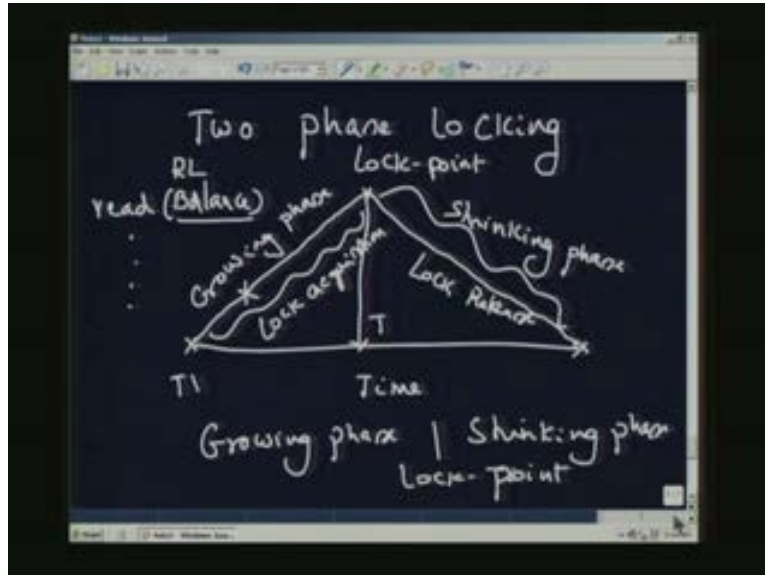 Two phase locking
RL
Lock-point
read (Balance)
Growing phase
Lock acquisition
Shrinking phase
Lock Release
T
T1
Time
Growing phase | Shrinking phase
Lock-point